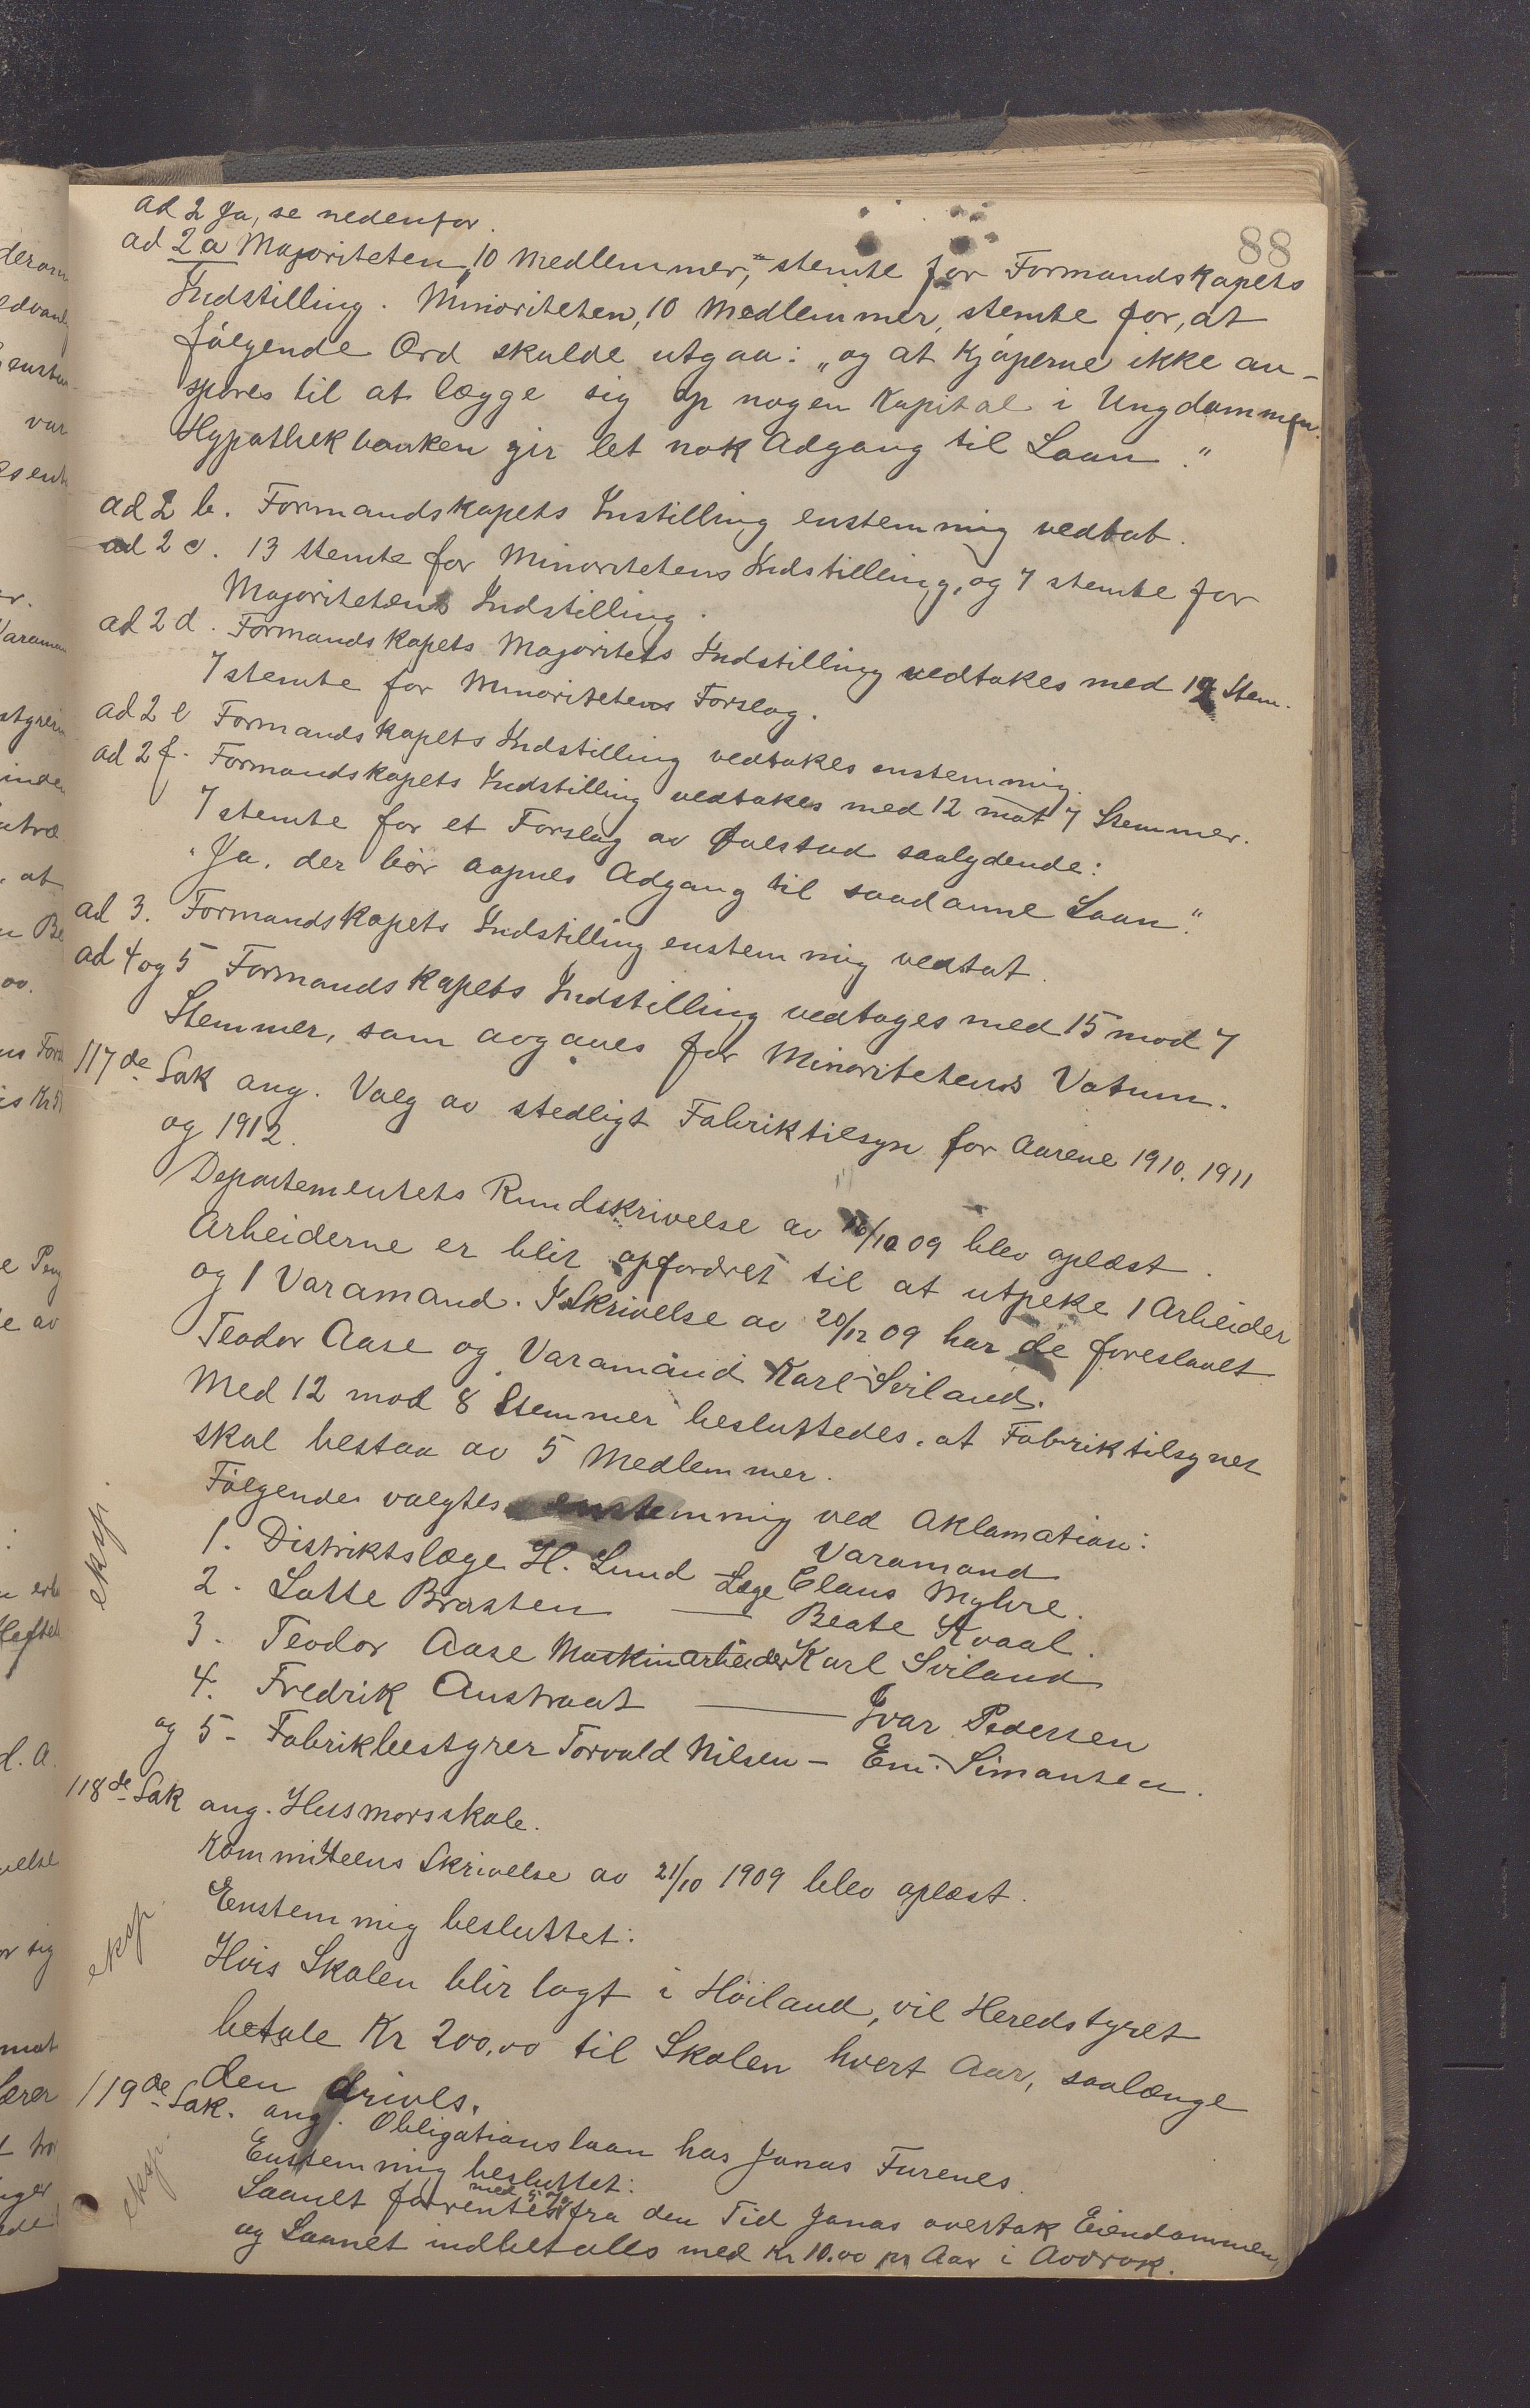 88
ad 2 Ja, se nedenfor.
ad 2 a Majoriteten, 10 Medlemmer, stemte for Formandskapets
Indstilling. Minoriteten, 10 Medlemmer, stemte for, at
følgende Ord skulde utgaa: „og at Kjøperne ikke an-
spores til at lægge sig op nogen Kapital i Ungdommen.
Hypothekbanken gir let nok Adgang til Laan."
ad 2 b. Formandskapets Instilling enstemmig vedtat.
ad 2 c. 13 stemte for Minoritetens Indstilling, og 7 stemte for
Majoritetens Indstilling.
ad 2 d. Formandskapets Majoritets Indstilling vedtakes med 12 Stem.
7 stemte for Minoritetens Forslag.
ad 2 e Formandskapets Indstilling vedtakes enstemmig.
ad 2 f. Formandskapets Indstilling vedtakes med 12 mot 7 Stemmer.
7 stemte for et Forslag av saalydende:
"Ja. der bør aapnes Adgang til saadanne Laan."
ad 3. Formandskapets Indstilling enstemmig vedtat.
ad 4 og 5 Formandskapets Indstilling vedtages med 15 mod 7
Stemmer, som avgaves for Minoritetens Votum.
117de Sak ang. Valg av stedligt Fabriktilsyn for Aarene 1910. 1911
og 1912.
Departementets Rundskrivelse av /10 09 blev oplæst.
Arbeiderne er blit opfordret til at utpeke 1 Arbeider
og 1 Varamand. I Skrivelse av 20/12 09 har de foreslaaet
Teodor Aase og Varamand Karl Sviland.
Med 12 mod 8 Stemmer besluttedes, at Fabriktilsynet
skal bestaa av 5 Medlemmer.
eksp.
Følgende valgtes enstemmig ved Aklamation:
Varamand
1. Distriktslæge H. Lund – Læge Claus Myhre.
2. Lotte Brasten — Beate Kvaal.
3. Teodor Aase Maskinarbeider Karl Sviland
4. Fredrik Austraat — Ivar Pedersen
og 5 - Fabrikbestyrer Torvald Nilsen – Em. Simonsen.
118de Sak ang. Husmorsskole.
Kommiteens Skrivelse av 21/10 1909 blev oplæst.
Enstemmig besluttet:
eksp.
Hvis Skolen blir lagt i Høiland, vil Heredstyret
betale Kr 200.00 til Skolen hvert Aar, saalænge
den drives.
119de Sak. ang. Obligationslaan hos Jonas Furenes.
eksp.
Enstemmig besluttet:
med 5 %
Laanet forrentes fra den Tid Jonas overtok Eiendommen,
og Laanet indbetales med Kr 10.00 pr Aar i Avdrak.